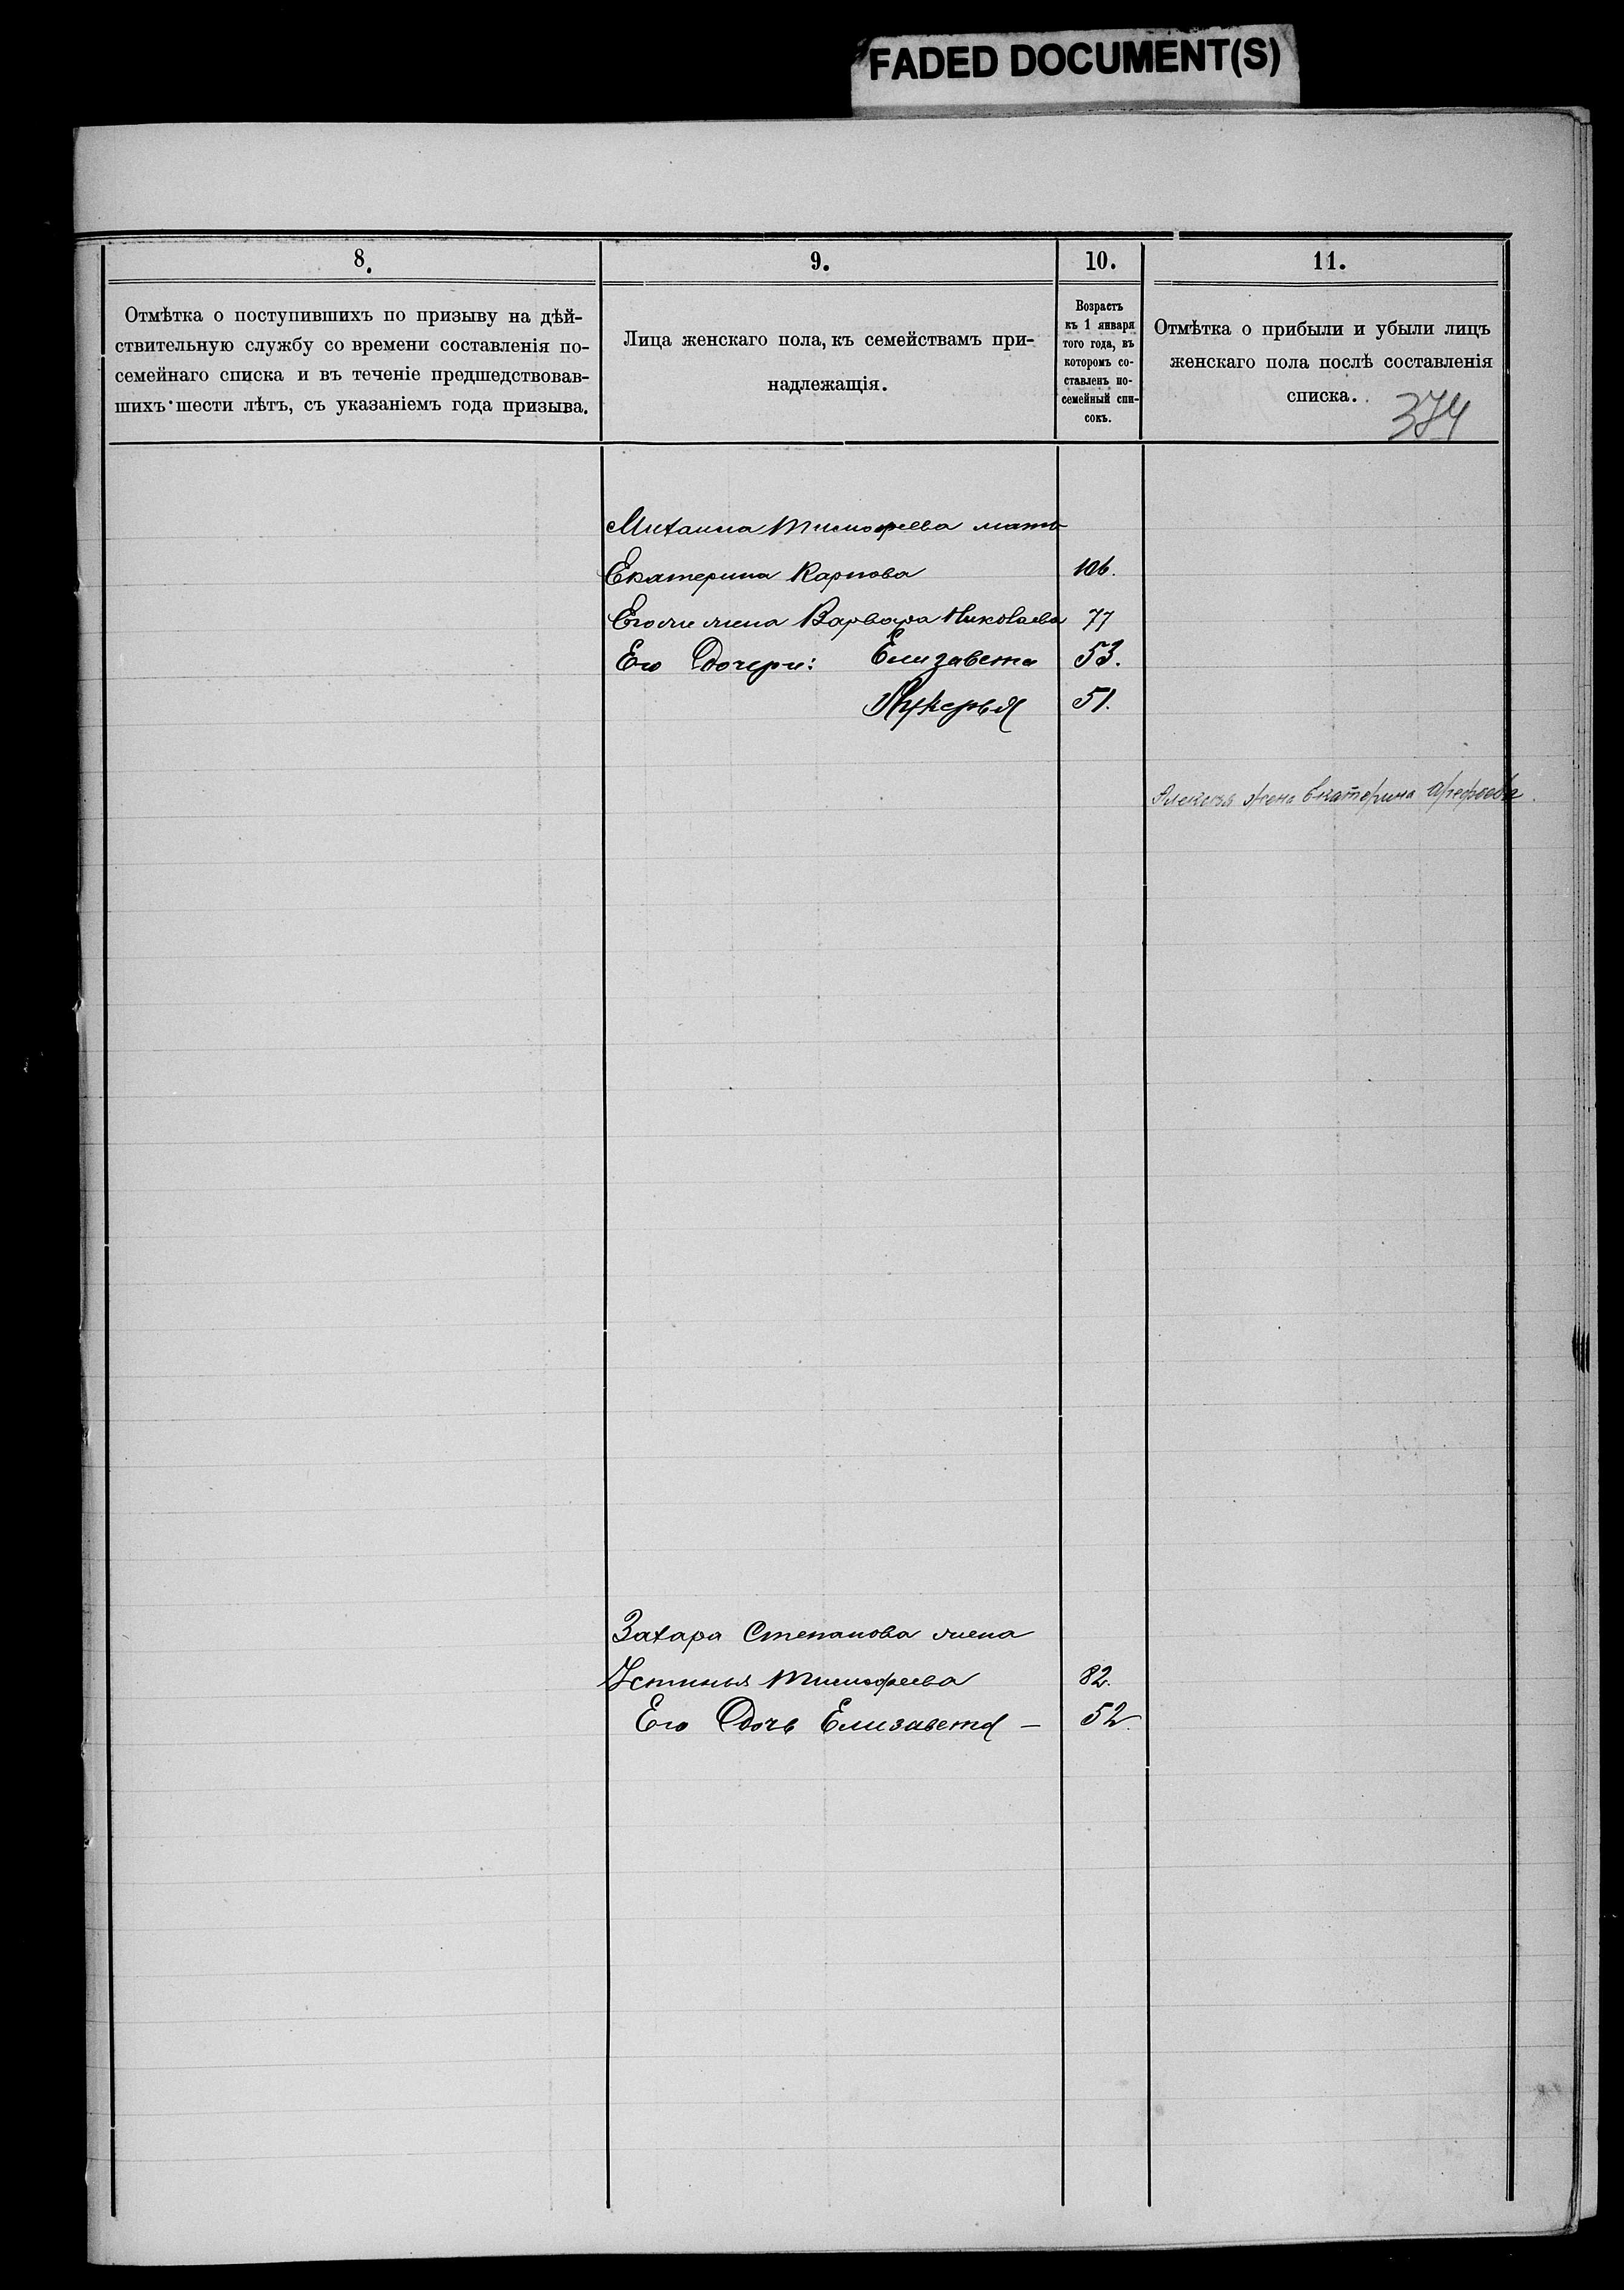 FADED DOCUMENT(S)
8.
Отмѣтка о поступившихъ по призыву на дѣй-
ствительную службу со времени составленія по-
семейнаго списка и въ теченіе предшедствовав-
шихъ шести лѣтъ, съ указаніемъ года призыва.
9.
Лица женскаго пола, къ семействамъ при-
надлежащія.
10.
Возрастъ
къ 1 января
того года, въ
которомъ со-
ставленъ по-
семейный спи-
сокъ.
11.
Отмѣтка о прибыли и убыли лицъ
женскаго пола послѣ составленія
списка.
374
Михаила Тимофеева мать
Екатерина Карпова 106.
Его жена Варвара Николаева 77
Его Дочери: Елизавета 53.
Лукерья 51.
Алексѣя жена Екатерина Арефьева.
Захара Степанова жена
Устинья Тимофеева 82.
Его Дочь Елизавета — 52.